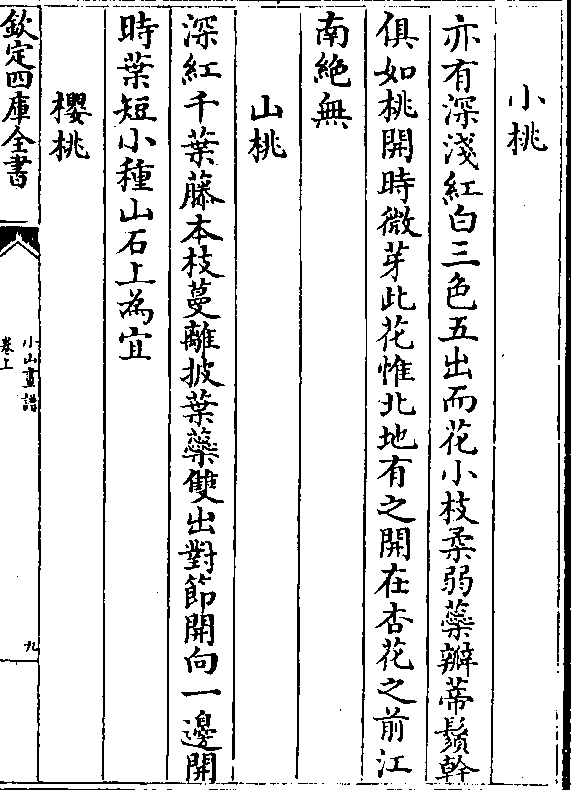 小桃
亦有深淺紅白三色五出而花小枝柔弱蘂瓣蒂鬚幹
俱如桃開時微芽此花惟北地有之開在杏花之前江
南絶無
山桃
深紅千葉藤本枝蔓離披葉蘂雙出對節開向一邊開
時葉短小種山石上為宜
櫻桃
欽定四庫全書
小山畫譜
卷上
九